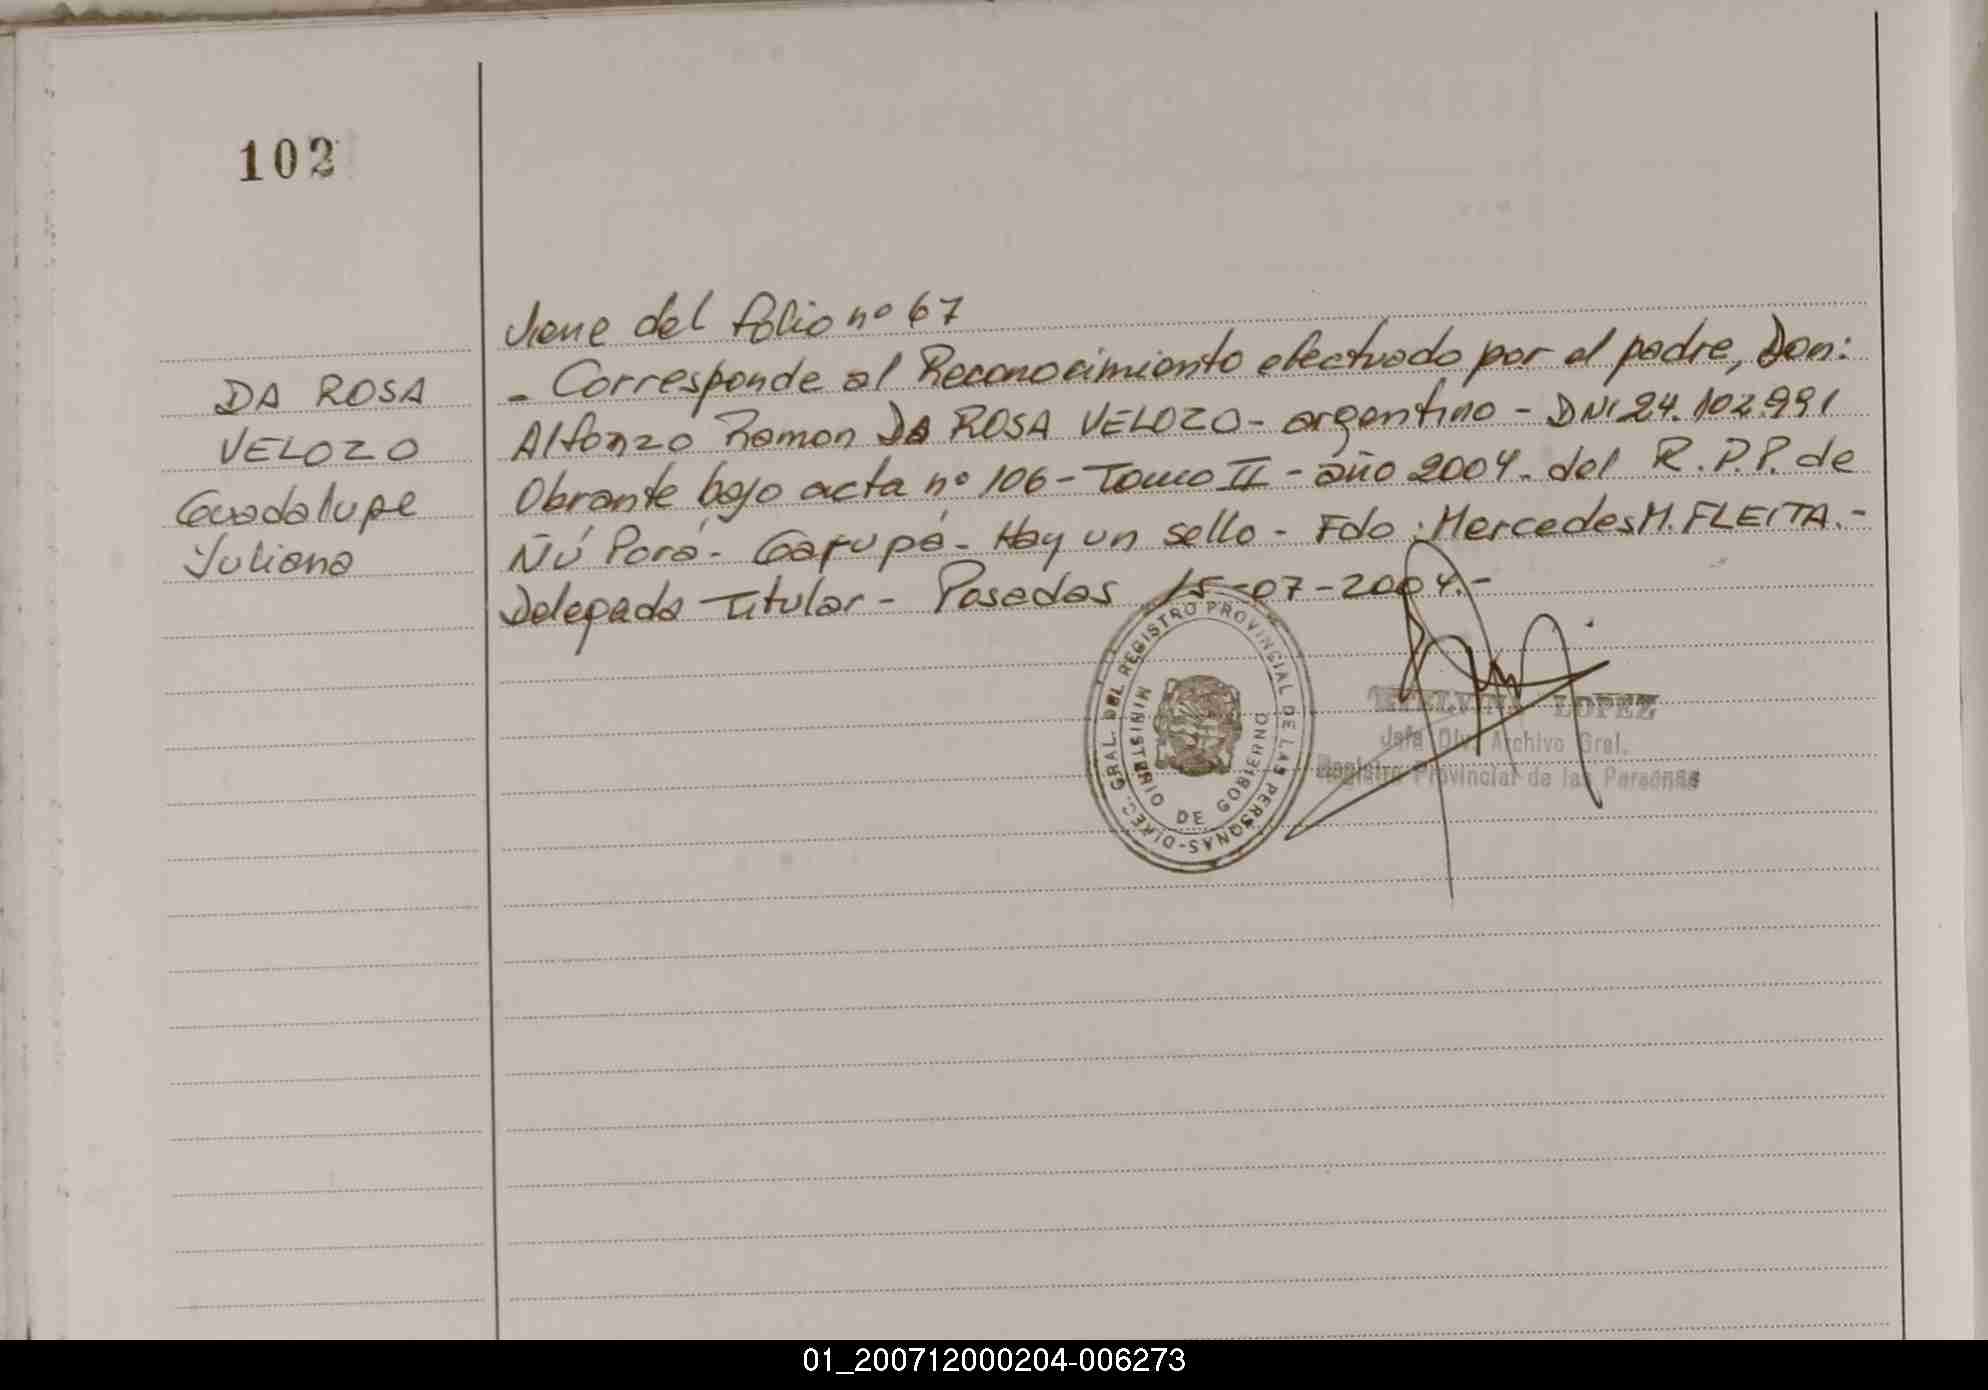 102
Viene del folio nº 67
- Corresponde al Reconocimiento efectuado por el padre, Don:
DA ROSA
Alfonzo Ramon DA ROSA VELOZO - argentino - DNI 24.102.991
VELOZO
Obrante bajo acta nº 106 - Tomo II - año 2004. del R.P.P. de
Guadalupe
Ñú Porá - Garupá - Hay un sello - Fdo: Mercedes M. FLEITA.-
Yuliana
Delegada Titular - Posadas 15-07-2004.-
DIREC. GRAL. DEL REGISTRO PROVINCIAL DE LAS PERSONAS-
MINISTERIO DE GOBIERNO
LOPEZ
Jefa Div. Archivo Gral.
Registro Provincial de las Personas
01_200712000204-006273